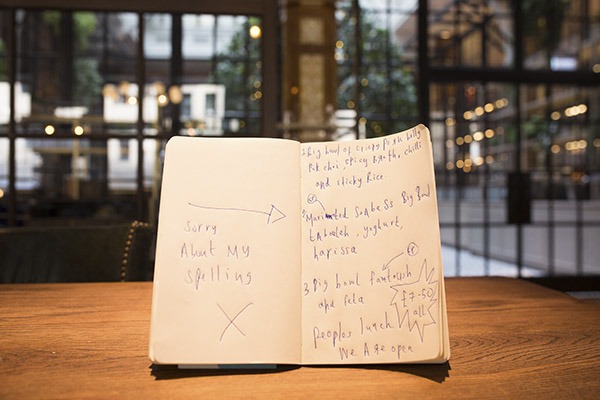 Sorry
About My
spelling
X
1. Big bowl of crispy pork belly
Pak choi, spicy broth, chilli
and sticky Rice
or
2. Marinated Big Bowl
tabouleh, yoghurt,
harissa
or
3. Big bowl fantoush
and feta
£7-50
all
Peoples lunch
We Are open